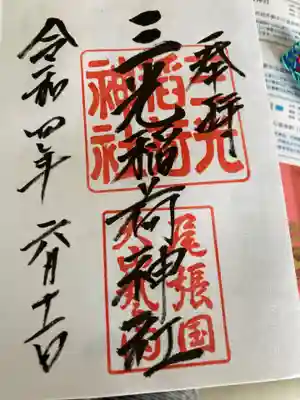 奉拝
三光稲荷神社
令和四年六月十二日
三光稲荷神社
尾張国